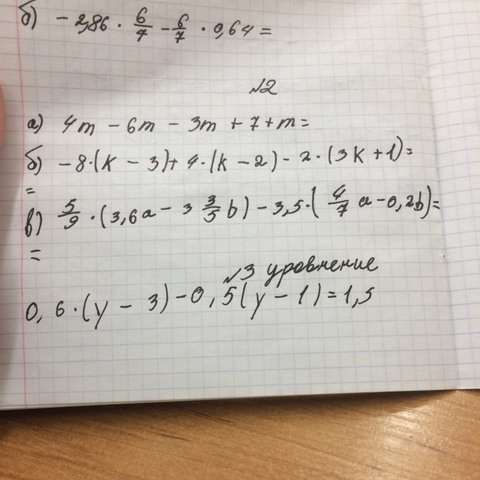 б) -2,86 · 6/7 - 6/7 · 0,64 =
№2
а) 4m - 6m - 3m + 7 + m =
б) -8·(k - 3) + 4·(k - 2) - 2·(3k + 1) =
=
в) 5/9 · (3,6a - 3 3/5 b) - 3,5·(4/7 a - 0,2b) =
=
№3 уровнение
0,6·(y - 3) - 0,5(y - 1) = 1,5